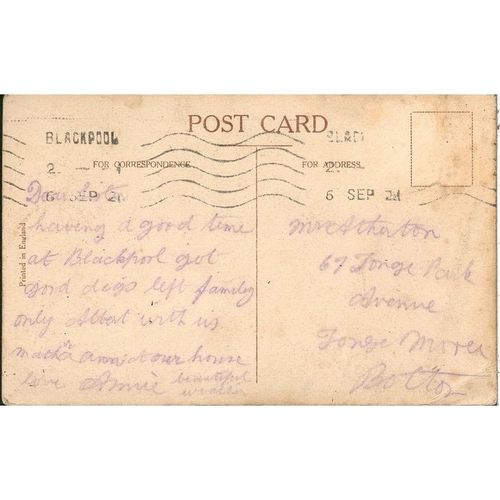 POST CARD
BLACKPOOL
2
6 SEP 21
BLACK
2
6 SEP 21
FOR CORRESPONDENCE
FOR ADDRESS
Printed in England
Dear
having a good time
at Blackpool got
good digs left family
only Albert with us
ann at our house
love Annie beautiful
weather
Mrs Atherton
67 Tonge Park
Avenue
Tonge Moor
Bolton